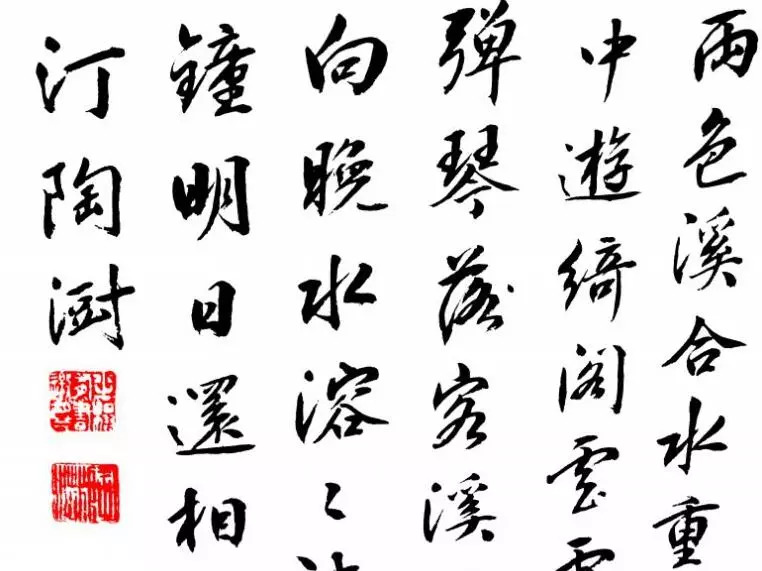 雨色溪合水重
中遊綺閣雲
弹琴落客溪
向晚水溶〻
鐘明日還相
汀陶澍